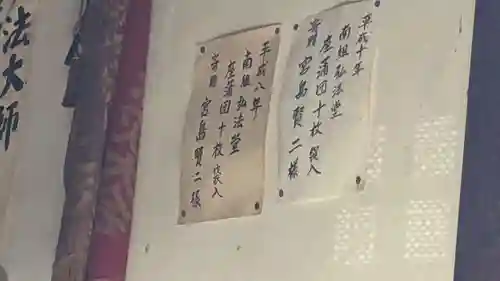 平成十年
南組弘法堂
座蒲団十枚袋入
寄贈 宮島賢二様
平成八年
南組弘法堂
座蒲団十枚袋入
寄贈 宮島賢二様
法大師